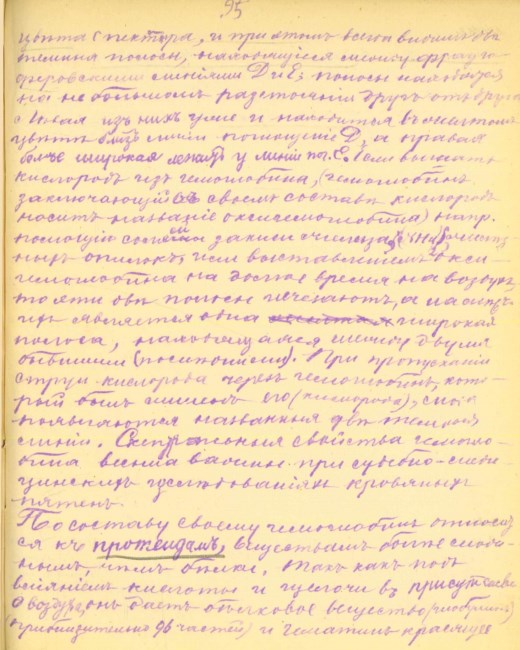 95
цвета спектра, и при этомъ всегда видимъ двѣ
темныя полосы, находящіеся между фраун-
гоферовскими линіями D и E, полосы находятся
на небольшомъ разстояніи другъ отъ друга
лѣвая изъ нихъ уже и находится въ желтомъ
цвѣтѣ близъ линіи поглощенія D, а правая
болѣе широкая лежитъ у линіи E. Если вытѣснить
кислородъ изъ гемоглобина, (гемоглобинъ
заключающій въ своемъ составѣ кислородъ
носитъ названіе оксигемоглобина) напр.
помощію солей закиси желѣза,
опилокъ или выставленіемъ окси-
гемоглобина на долгое время на воздухъ,
то эти двѣ полосы исчезаютъ, а на мѣстѣ
ихъ является одна широкая
полоса, находящаяся между двумя
бывшими (посрединѣ). При пропусканіи
струи кислорода черезъ гемоглобинъ, кото-
рый былъ лишенъ его (кислорода), снова
появляются названныя двѣ темныя
линіи. Спектральныя свойства гемогло-
бина весьма важны при судебно-меди-
цинскихъ изслѣдованіяхъ кровяныхъ
пятенъ.
По составу своему гемоглобинъ относит-
ся къ протеидамъ, веществамъ болѣе слож-
нымъ, чѣмъ бѣлки. Такъ какъ подъ
вліяніемъ кислоты и щелочи въ присутствіи
воздуха, онъ даетъ бѣлковое вещество (глобулинъ)
приблизительно 96 частей) и гематинъ красящее